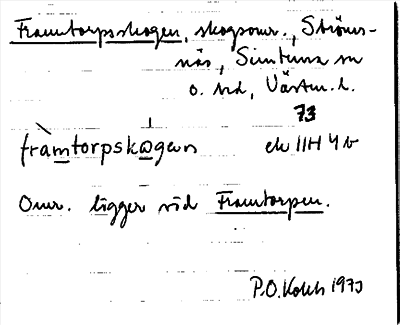 Framtorpsskogen, skogsomr., Ströms-
näs, Simtuna sn
o. hd, Västm. l.
73
fràmtorpskogen ek 11H 4b
Omr. ligger vid Framtorpen.
P.O. Kols 1973